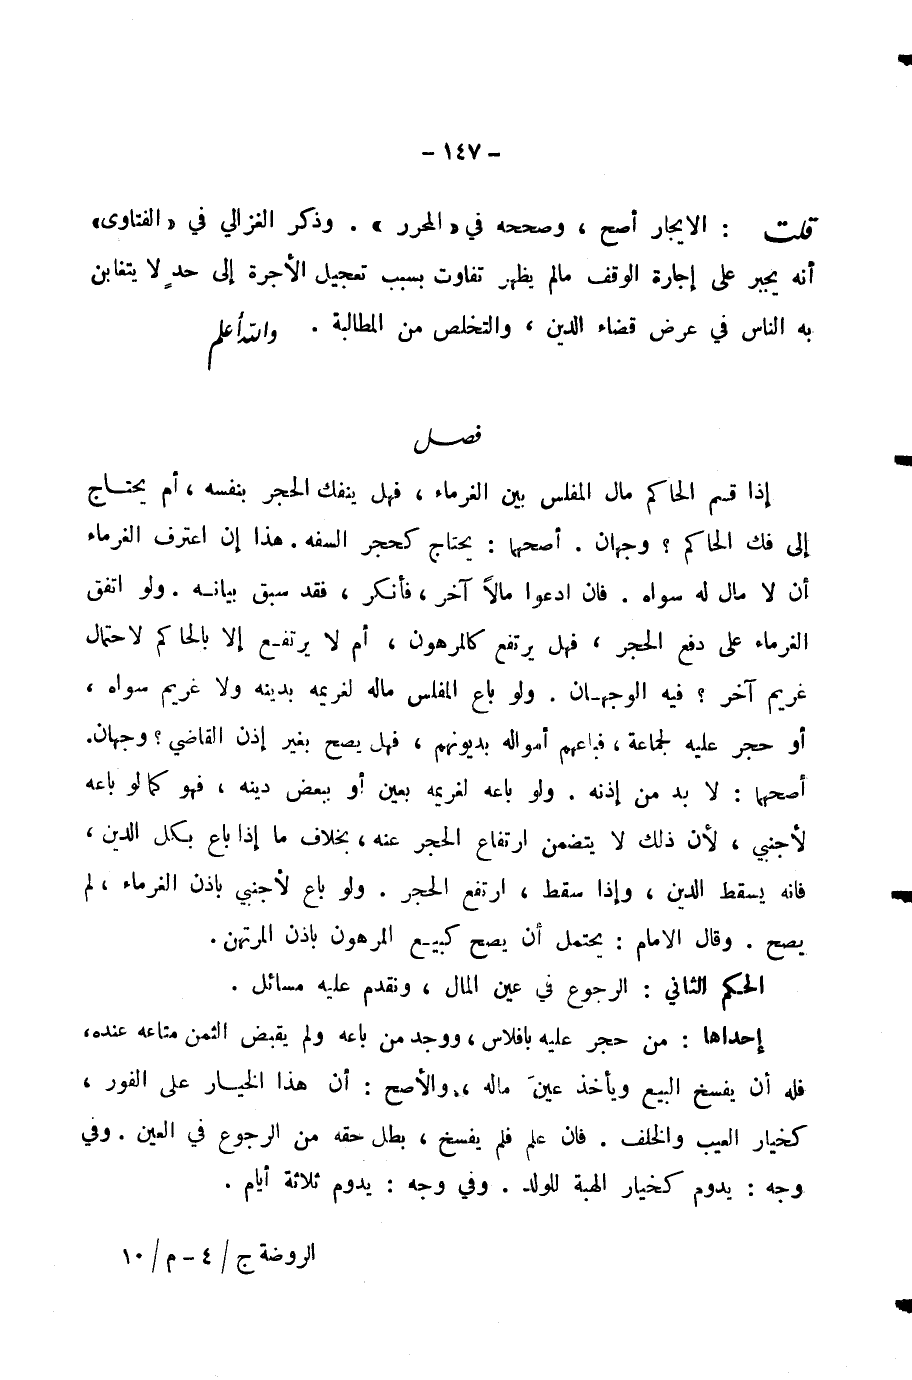 - ١٤٧ -
قلت : الايجار أصح ، وصححه في « المحرر » . وذكر الغزالي في « الفتاوى »
أنه يجبر على إجارة الوقف مالم يظهر تفاوت بسبب تعجيل الأجرة إلى حدٍ لا يتغابن
به الناس في عرض قضاء الدين ، والتخلص من المطالبة . والله أعلم
فصل
إذا قسم الحاكم مال المفلس بين الغرماء ، فهل ينفك الحجر بنفسه ، أم يحتاج
إلى فك الحاكم ؟ وجهان . أصحها : يحتاج كحجر السفه . هذا إن اعترف الغرماء
أن لا مال له سواه . فان ادعوا مالاً آخر ، فأنكر ، فقد سبق بيانه . ولو اتفق
الغرماء على دفع الحجر ، فهل يرتفع كالمرهون ، أم لا يرتفع إلا بالحاكم لاحتمال
غريم آخر ؟ فيه الوجهان . ولو باع المفلس ماله لغريمه بدينه ولا غريم سواه ،
أو حجر عليه لجماعة ، فباعهم أمواله بديونهم ، فهل يصح بغير إذن القاضي ؟ وجهان.
أصحها : لا بد من إذنه . ولو باعه لغريمه بعين أو ببعض دينه ، فهو كما لو باعه
لأجنبي ، لأن ذلك لا يتضمن ارتفاع الحجر عنه ، بخلاف ما إذا باع بكل الدين ،
فانه يسقط الدين ، وإذا سقط ، ارتفع الحجر . ولو باع لأجنبي باذن الغرماء ، لم
يصح . وقال الامام : يحتمل أن يصح كبيع المرهون باذن المرتهن .
الحكم الثاني : الرجوع في عين المال ، ونقدم عليه مسائل .
إحداها : من حجر عليه بافلاس ، ووجد من باعه ولم يقبض الثمن متاعه عنده ،
فله أن يفسخ البيع ويأخذ عينَ ماله ، والأصح : أن هذا الخيار على الفور ،
كخيار العيب والخلف . فان علم فلم يفسخ ، بطل حقه من الرجوع في العين . وفي
وجه : يدوم كخيار الهبة للولد . وفي وجه : يدوم ثلاثة أيام .
الروضة ج / ٤ - م / ١٠